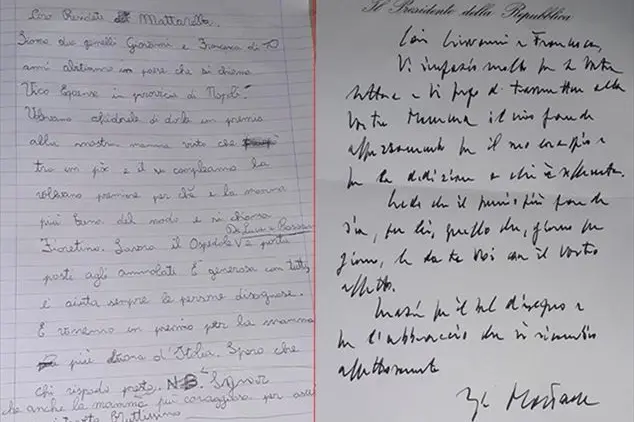 Caro Presidente Mattarella.
Siamo due gemelli Giovanni e Francesca di 10
anni abitiamo in paese che si chiama
Vico Equense in provincia di Napoli.
Volevamo chiederle di darle un premio
alla nostra mamma visto che
tra un pò è il compleanno la
volevamo premiare per chè è la mamma
più buona del mondo e si chiama
De Luca e Rossan
Fioretino. Lavora il Ospedale e porta
pasti agli ammalati È generosa con tutti,
e aiuta sempre le persone disagnose.
E vorremo un premio per la mamma
più buona d'Italia. Spero che
chi risponde presto. NB. Signor
che anche la mamma più coraggiosa per
Il Presidente della Repubblica
Cari Giovanni e Francesca,
Vi ringrazio molto per la Vostra
lettera e Vi prego di trasmettere alla
Vostra Mamma il mio grande
apprezzamento per il suo coraggio e
per la dedizione a chi è
Credo che il premio più grande
sia, per lei, quello che, giorno per
giorno, le date Voi con il Vostro
affetto.
Grazie per il bel disegno e
per l'abbraccio che vi ricambio
affettuosamente
Mattarella